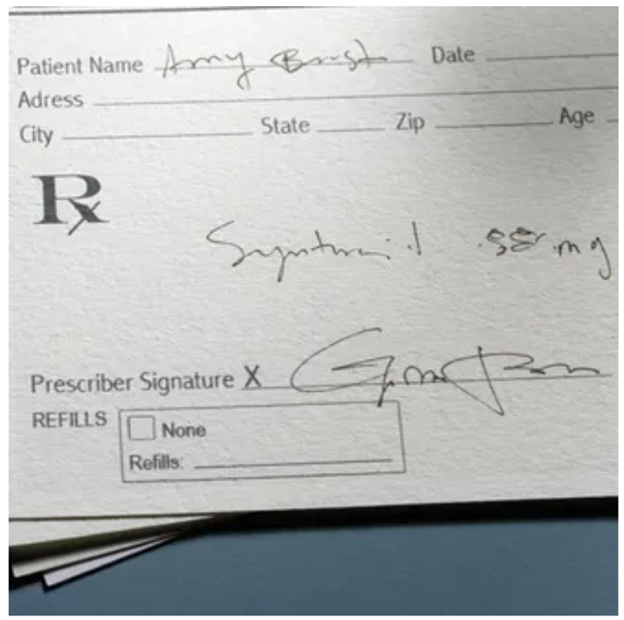 Patient Name Amy Date
Adress
City State Zip Age
Rx
mg
Prescriber Signature X
REFILLS
None
Refills: